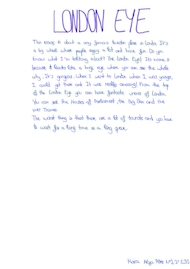 LONDON EYE
This essay is about a very famous tourist place in London. It's
a big wheel where people enjoy a lot and have fun. Do you
know what I'm talking about? The London Eye! Its name is
because it looks like a huge eye where you can see the whole
city. It's gorgeous. When I went to London when I was younger,
I could get there and it was really amazing! From the top
of the London Eye you can have fantastic views of London.
You can see the Houses of Parliament, the Big Ben and the
river Thames.
The worst thing is that there are a lot of tourists and you have
to wait for a long time in a long queue.
María